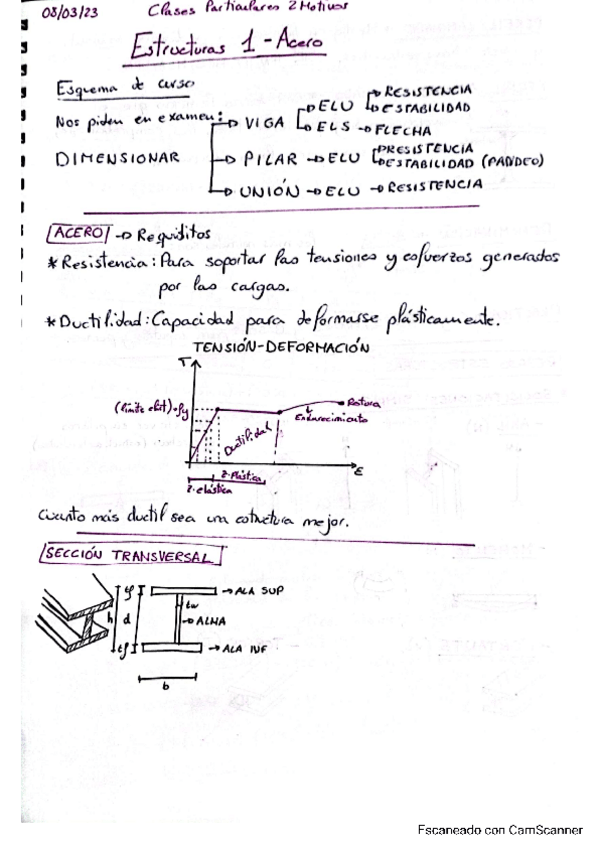 08/03/23 Clases Particulares 2 Motivos
Estructuras 1 - Acero
Esquema de curso
Nos piden en examen:
DIMENSIONAR
→ VIGA → ELU → RESISTENCIA
→ ESTABILIDAD
→ ELS → FLECHA
→ PILAR → ELU → RESISTENCIA
→ ESTABILIDAD (PANDEO)
→ UNIÓN → ELU → RESISTENCIA
ACERO → Requisitos
* Resistencia: Para soportar las tensiones y esfuerzos generados
por las cargas.
* Ductilidad: Capacidad para deformarse plásticamente.
TENSIÓN-DEFORMACIÓN
T
(límite elást) fy
Ductilidad
Rotura
Endurecimiento
ε
z. plástica
z. elástica
Cuanto más ductil sea una estructura mejor.
SECCIÓN TRANSVERSAL
tf
h
d
tf
tw
→ ALA SUP
→ ALMA
→ ALA INF
b
Escaneado con CamScanner